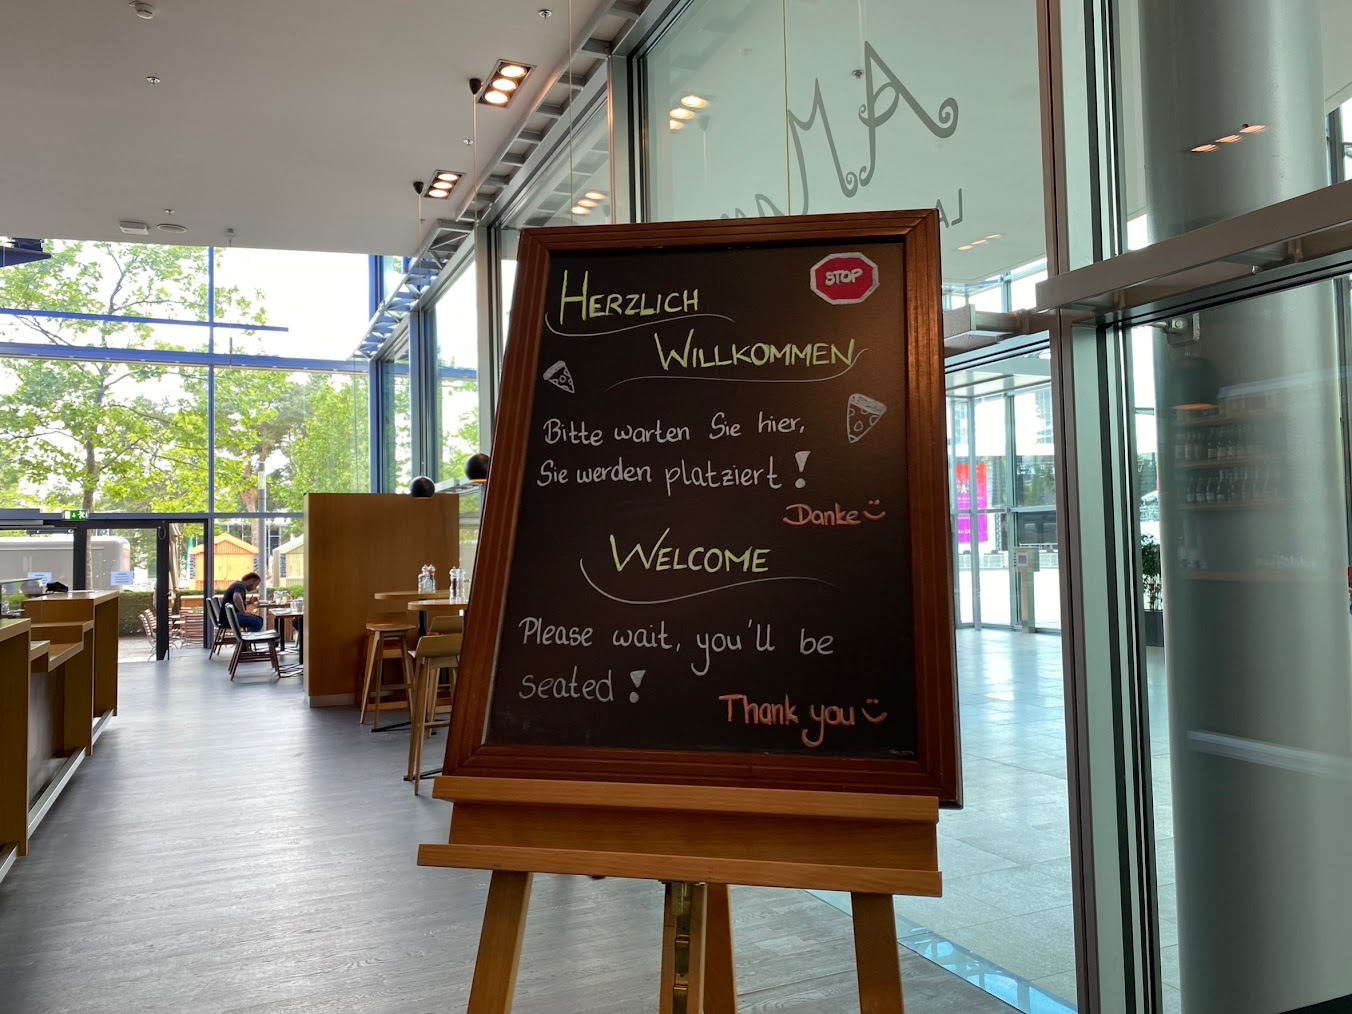 STOP
HERZLICH
WILLKOMMEN
Bitte warten Sie hier,
Sie werden platziert!
Danke
WELCOME
Please wait, you'll be
seated!
Thank you